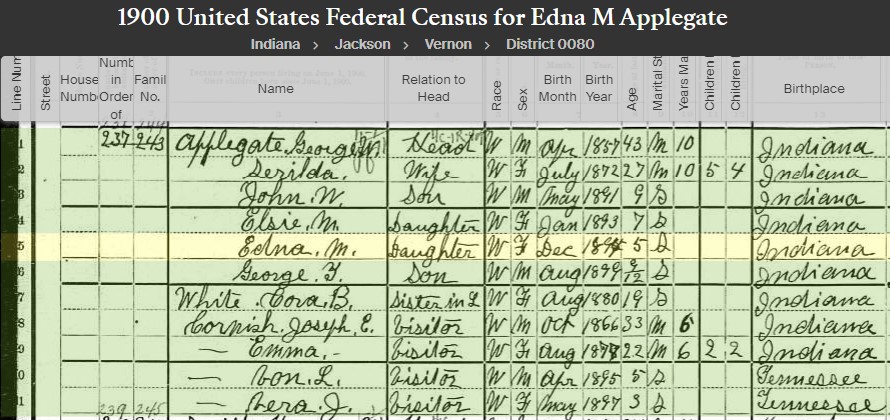 1900 United States Federal Census for Edna M Applegate
Indiana > Jackson > Vernon > District 0080
Line Num Street House Numb Numb in Order of Famil No. Name Relation to Head Race Sex Birth Month Birth Year Age Marital S Years Ma Children Children Birthplace
1 237 243 Applegate George W Head W M Apr 1857 43 M 10 Indiana
2 Serilda. Wife W F July 1872 27 M 10 5 4 Indiana
3 John W. Son W M May 1891 9 S Indiana
4 Elsie M. Daughter W F Jan 1893 7 S Indiana
5 Edna. M. Daughter W F Dec 5 S Indiana
6 George F. Son W M Aug 1899 9/12 S Indiana
7 White Cora B. Sister in L W F Aug 1880 19 S Indiana
8 Cornish Joseph. E. Visitor W M Oct 1866 33 M 6 Indiana
9 — Emma. - Visitor W F Aug 22 M 6 2 2 Indiana
0 — Von. L. Visitor W M Apr 1895 5 S Tennessee
1 — Vera. J. Visitor W F May 1897 3 S Tennessee
239 245